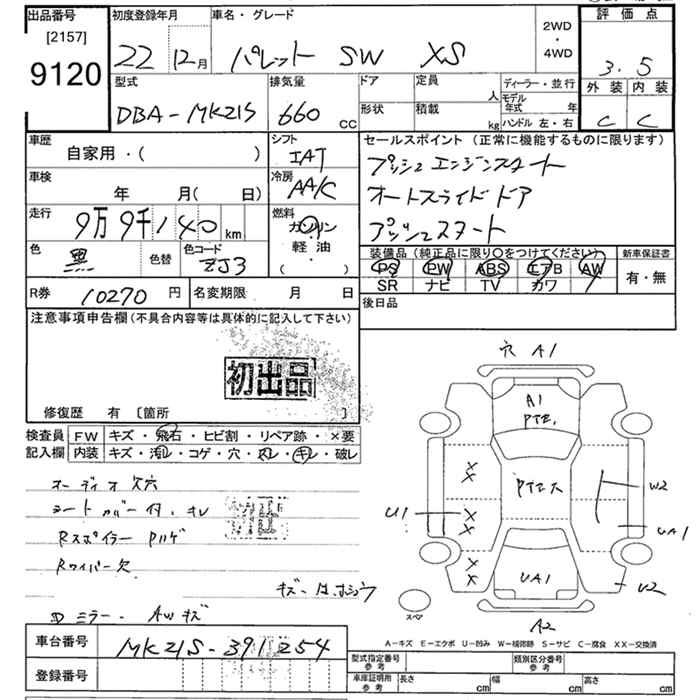 出品番号
[2157]
9120
初度登録年月
22 12月
車名・グレード
パレット SW XS
2WD
・
4WD
評価点
3.5
外装 内装
C C
型式
DBA-MK21S
排気量
660 CC
ドア
形状
定員 人
積載 kg
ディーラー・並行
モデル年式 年
ハンドル 左・右
車歴
自家用・( )
車検
年 月( 日)
走行
9万9千140km
色
黒
色替
色コード
ZJ3
シフト
IAT
冷房
AA/C
燃料
ガソリン
軽油・
( )
セールスポイント (正常に機能するものに限ります)
プッシュエンジンスタート
オートスライドドア
プッシュスタート
装備品(純正品に限り〇をつけてください)
PS PW ABS エアB AW
SR ナビ TV カワ
新車保証書
有・無
R券 10270円
名変期限 月 日
後日品
注意事項申告欄(不具合内容等は具体的に記入して下さい)
初出品
修復歴 有 〔箇所 〕
検査員
記入欄
FW キズ・飛石・ヒビ割・リペア跡・×要
内装 キズ・汚れ・コゲ・穴・スレ・キレ・破レ
オーディオ欠穴
シートカバー付、キレ
Rスポイラー ハゲ
Rワイパー欠
Dミラー・AWキズ
ネ A1
A1
U1
W2
UA1
UA1
U2
A2
スペア
A-キズ E-エクボ U-凹み W-補修跡 S-サビ C-腐食 XX-交換済
車台番号
MK21S-391254
登録番号
型式指定番号
参考
類別区分番号
参考
車庫証明用
参考
長さ cm
幅 cm
高さ cm